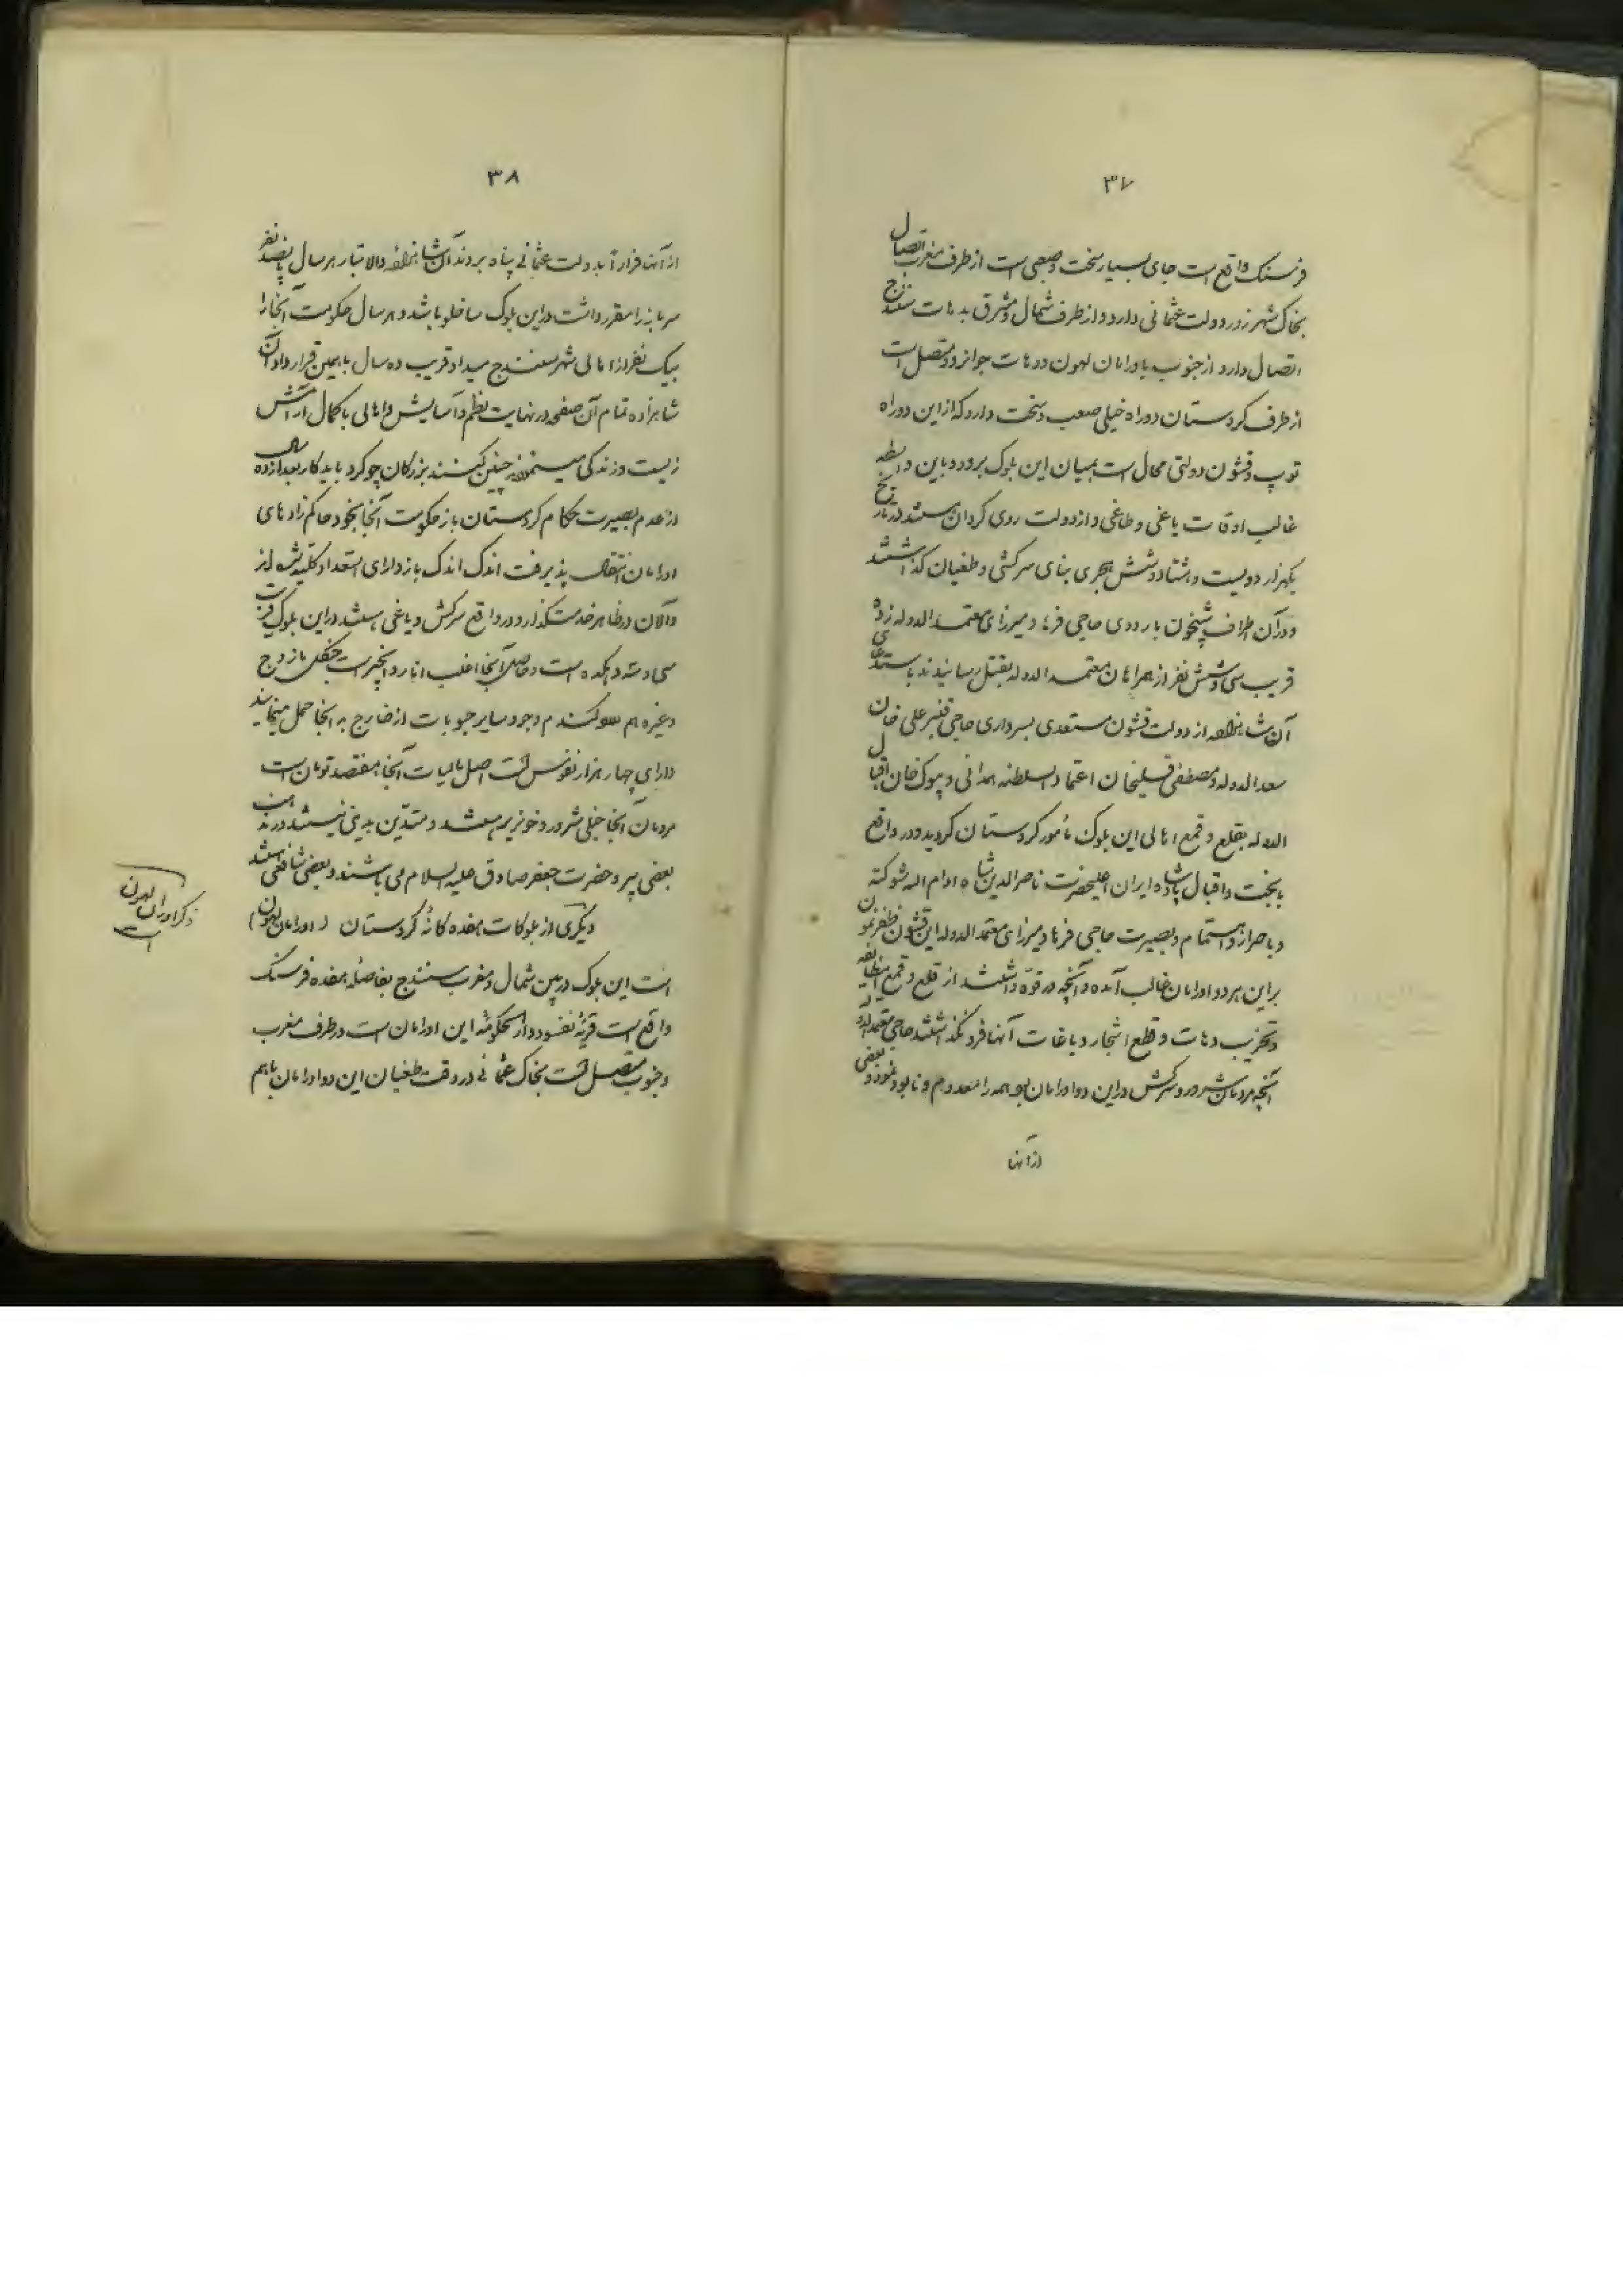 ۳۷
فرسنک واقع است جای بسیار سخت و صعبی است از طرف مغرب اتصال
بخاک شهرزور دولت عثمانی دارد و از طرف شمال و مشرق بدهات سنندج
اتصال دارد از جنوب باورامان لهون و دهات جوانرود متصل است
از طرف کردستان دو راه خیلی صعب و سخت دارد که از این دو راه
توپ و قشون دولتی محال است بمیان این بلوک برود و باین واسطه
غالب اوقات یاغی و طاغی و از دولت روی کردان هستند در تاریخ
یکهزار و دویست و هشتاد و شش هجری بنای سرکشی و طغیان کذاشتند
و در آن اطراف شبیخون باردوی حاجی فرهاد میرزای معتمد الدوله زده
قریب سی و شش نفر از همراهان معتمد الدوله بقتل رسانیدند باستدعای
آن شاهزاده از دولت قشون مستعدی بسرداری حاجی قنبر علی خان
سعد الدوله و مصطفی قلیخان اعتماد السلطنه همدانی و بیوک خان اقبال
الدوله بقلع و قمع اهالی این بلوک مأمور کردستان کردید و در واقع
با بخت و اقبال پادشاه ایران اعلیحضرت ناصرالدین شاه ادام الله شوکته
و باصرار و اهتمام و بصیرت حاجی فرهاد میرزای معتمد الدوله این قشون ظفرنمون
بر این هر دو اورامان غالب آمده و آنچه در قوّه داشتند از قلع و قمع این طایفه
و تخریب دهات و قطع اشجار و باغات آنها فرو نکذاشتند حاجی معتمد الدوله
آنچه مردمان شرور و سرکش در این دو اورامان بود همه را معدوم و نابود نمود و بعضی
از آنها
۳۸
از آنها فراراً بدولت عثمانی پناه بردند آن شاهزاده والاتبار هر سال پانصد نفر
سرباز را مقرر داشت در این بلوک ساخلو باشد و هر سال حکومت آنجا را
بیک نفر از اهالی شهر سنندج میداد قریب ده سال باهمین قرارداد آن
شاهزاده تمام آن صفحه در نهایت نظم و آسایش و اهالی با کمال آرامش
زیست و زندکی مینمودند چنین کنند بزرکان چو کرد باید کار بعد از ده سال
از عدم بصیرت حکام کردستان باز حکومت آنجا بخود حاکم زاده‌های
اورامان انتقال پذیرفت اندک اندک باز دارای استعداد کلیه شده‌اند
و الان در ظاهر خدمتکذار و در واقع سرکش و یاغی هستند در این بلوک قریب
سی و سه دهکده است و حاصل آنجا اغلب انار و انجیر است جنکل مازوج
و غیره هم دارد کندم و جو و سایر حبوبات از خارج به آنجا حمل مینمایند
دارای چهار هزار نفوس است اصل مالیات آنجا هفتصد تومان است
مردمان آنجا خیلی شرور و خونریز هستند و متدین بدینی نیستند در مذهب
بعضی پیرو حضرت جعفر صادق علیه السلام می باشند و بعضی شافعی هستند
دیکری از بلوکات هفده کانهٔ کردستان (اورامان لهون)
است این بلوک در بین شمال و مغرب سنندج بفاصلهٔ هفده فرسنک
واقع است قریهٔ نفسود دارالحکومهٔ این اورامان است در طرف مغرب
و جنوب متصل است بخاک عثمانی در وقت طغیان این دو اورامان باهم
ذکر اورامان لهون
است